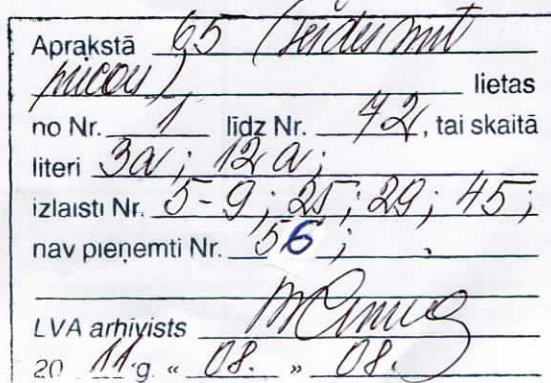 Aprakstā 65 (sešdesmit
piecas) lietas
no Nr. 1 līdz Nr. 72, tai skaitā
literi 3a; 12a;
izlaisti Nr. 5-9; 25; 29; 45;
nav pieņemti Nr. 56;
LVA arhivists
20 11 g. « 08. » 08.